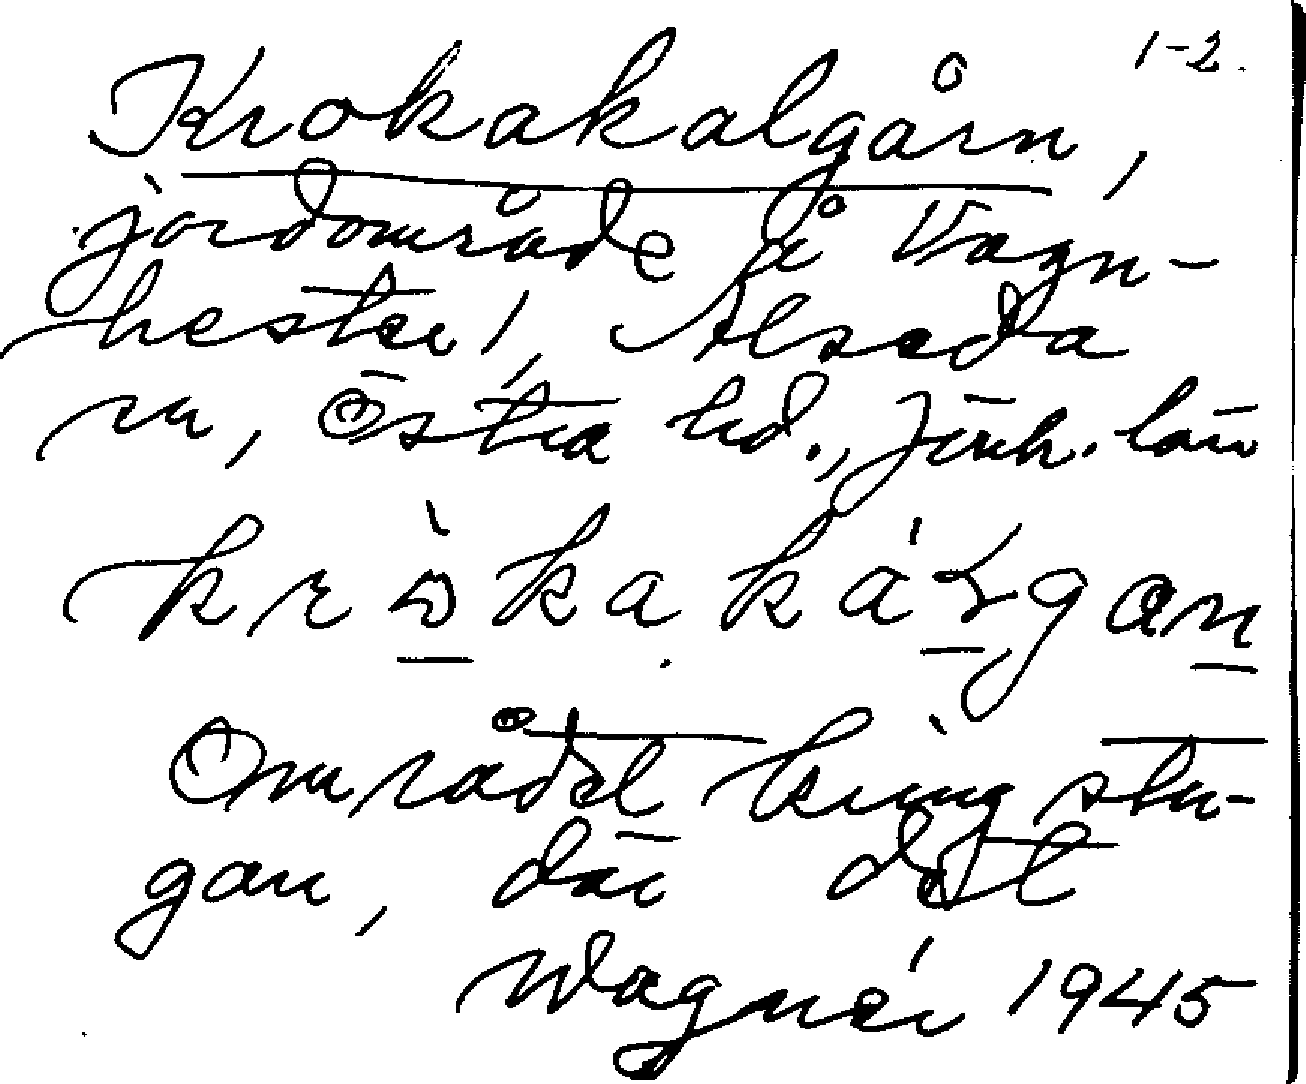 1-2.
Krokakalgårn,
jordområde på Vagn-
hester, Alseda
sn, Östra hd., Jönk. län
Området kring stu-
gan, där det
Wagnér 1945